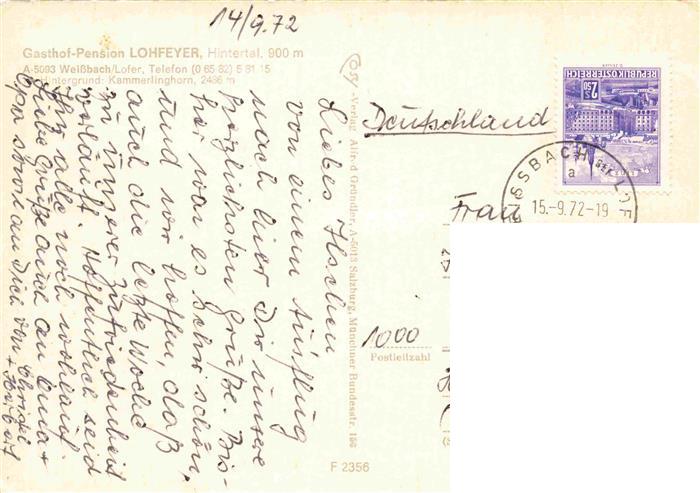 14/9.72
Gasthof-Pension LOHFEYER, Hintertal, 900 m
A-5093 Weißbach/Lofer, Telefon (0 65 82) 5 81 15
Hintergrund: Kammerlinghorn, 2486 m
Liebes Ilschen
von einem Ausflug
nach hier Dir unsere
herzlichsten Grüße. Bis-
her war es sehr schön,
und wir hoffen, daß
auch die letzte Woche
zu unserer Zufriedenheit
verläuft. Hoffentlich seid
Ihr alle noch wohlauf.
Liebe Grüße auch an
Opa sowie an Dich von
Christel
+ Herbert
Verlag Alfred Gründler, A-5013 Salzburg, Münchner Bundesstr. 156
Deutschland
REPUBLIK ÖSTERREICH
2.50
S
15.-9.72-19
a
Frau
1000
Postleitzahl
F 2356